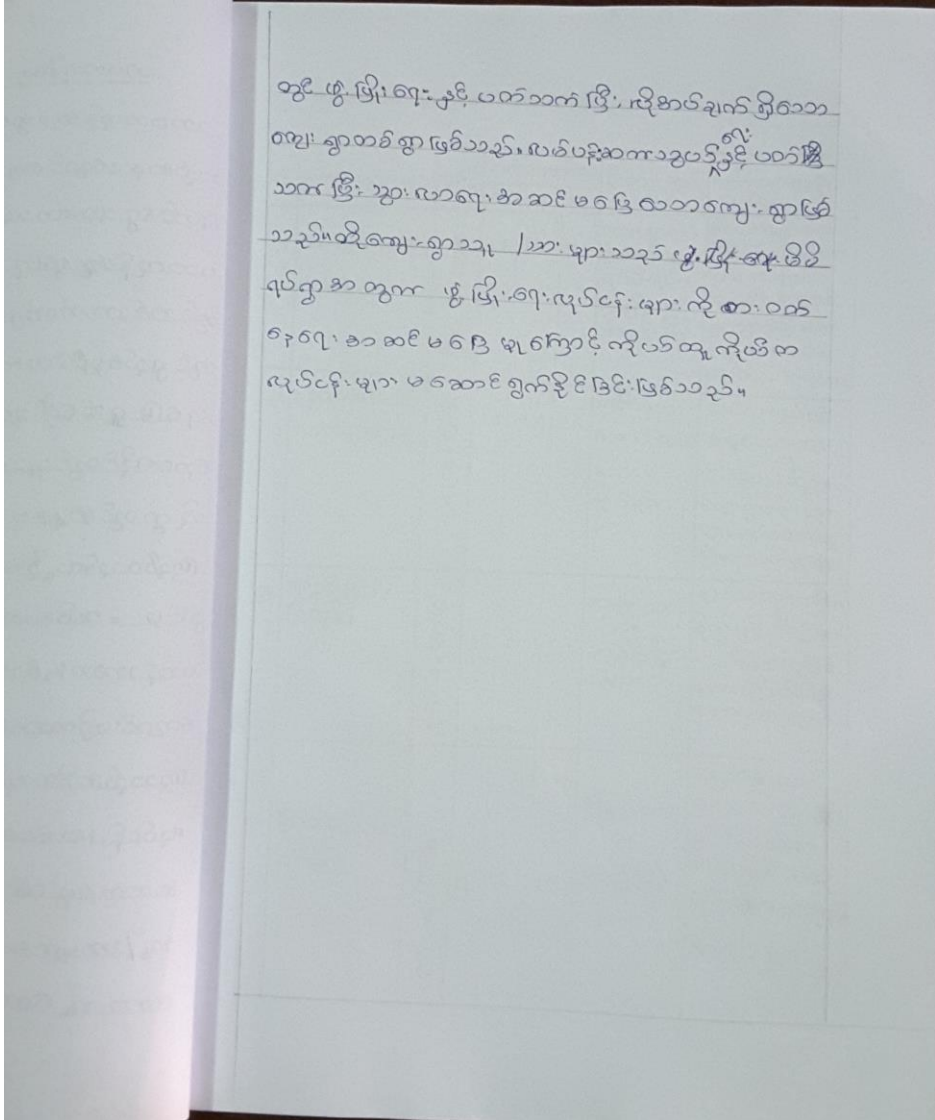 တွင် ဖွံ့ဖြိုးရေးနှင့် ပတ်သက်ပြီး လိုအပ်ချက်ရှိသော
ကျေးရွာတစ်ရွာဖြစ်သည်။ လမ်ပန်းဆက်သွယ်ရေးနှင့် ပတ်
သက်ပြီး သွားလာရေး အဆင်မပြေသောကျေးရွာဖြစ်
သည်။ ထိုကျေးရွာသူ/သားများသည် မိမိ
ရပ်ရွာအတွက် ဖွံ့ဖြိုးရေးလုပ်ငန်းများကို စားဝတ်
နေရေး အဆင်မပြေမှုကြောင့် ကိုယ်ထူကိုယ်ထ
လုပ်ငန်းများ မဆောင်ရွက်နိုင်ခြင်းဖြစ်သည်။